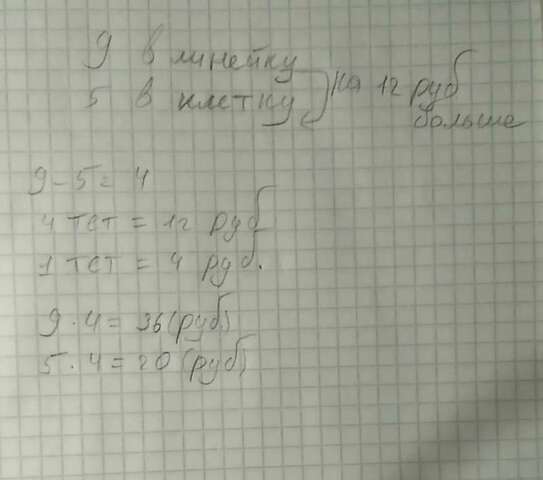 9 в линейку
5 в клетку } на 12 руб
больше
9 - 5 = 4
4 тет = 12 руб
1 тет = 4 руб.
9 · 4 = 36 (руб)
5 · 4 = 20 (руб)